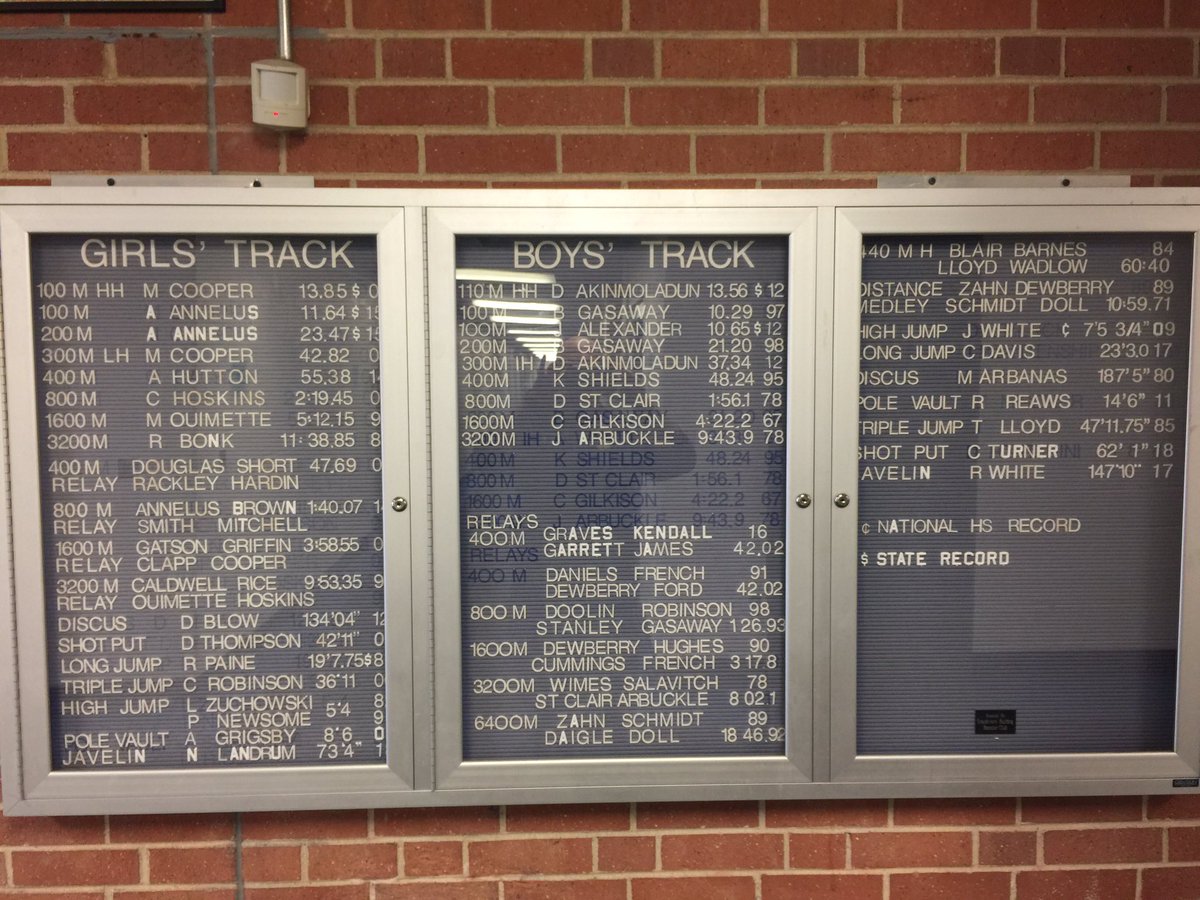 GIRLS' TRACK
100 M HH M COOPER 13.85 $ 0
100 M A ANNELUS 11.64 $ 15
200 M A ANNELUS 23.47 $ 15
300 M LH M COOPER 42.82 0
400 M A HUTTON 55.38 14
800 M C HOSKINS 2:19.45 0
1600 M M OUIMETTE 5:12.15 9
3200 M R BONK 11:38.85 8
400 M DOUGLAS SHORT 47.69 0
RELAY RACKLEY HARDIN
800 M ANNELUS BROWN 1:40.07 14
RELAY SMITH MITCHELL
1600 M GATSON GRIFFIN 3:58.55 0
RELAY CLAPP COOPER
3200 M CALDWELL RICE 9:53.35 9
RELAY OUIMETTE HOSKINS
DISCUS D BLOW 134'04" 12
SHOT PUT D THOMPSON 42'11" 0
LONG JUMP R PAINE 19'7.75 $ 8
TRIPLE JUMP C ROBINSON 36'11 0
HIGH JUMP L ZUCHOWSKI 5'4 8
P NEWSOME 9
POLE VAULT A GRIGSBY 8'6 0
JAVELIN N LANDRUM 73'4" 1
BOYS' TRACK
110 M HH D AKINMOLADUN 13.56 $ 12
100 M B GASAWAY 10.29 97
100M B ALEXANDER 10 65 $ 12
200M B GASAWAY 21.20 98
300M IH D AKINMOLADUN 37.34 12
400M K SHIELDS 48.24 95
800M D ST CLAIR 1:56.1 78
1600M C GILKISON 4:22.2 67
3200M J ARBUCKLE 9:43.9 78
RELAYS
400M GRAVES KENDALL 16
GARRETT JAMES 42.02
DANIELS FRENCH 91
DEWBERRY FORD 42.02
800 M DOOLIN ROBINSON 98
STANLEY GASAWAY 1 26.93
1600M DEWBERRY HUGHES 90
CUMMINGS FRENCH 3 17 8
3200M WIMES SALAVITCH 78
ST CLAIR ARBUCKLE 8 02 1
6400M ZAHN SCHMIDT 89
DAIGLE DOLL 18 46.92
440 M H BLAIR BARNES 84
LLOYD WADLOW 60:40
DISTANCE ZAHN DEWBERRY 89
MEDLEY SCHMIDT DOLL 10:59.71
HIGH JUMP J WHITE ¢ 7'5 3/4" 09
LONG JUMP C DAVIS 23'3.0 17
DISCUS M ARBANAS 187'5" 80
POLE VAULT R REAWS 14'6" 11
TRIPLE JUMP T LLOYD 47'11.75" 85
SHOT PUT C TURNER 62' 1" 18
JAVELIN R WHITE 147'10" 17
¢ NATIONAL HS RECORD
$ STATE RECORD